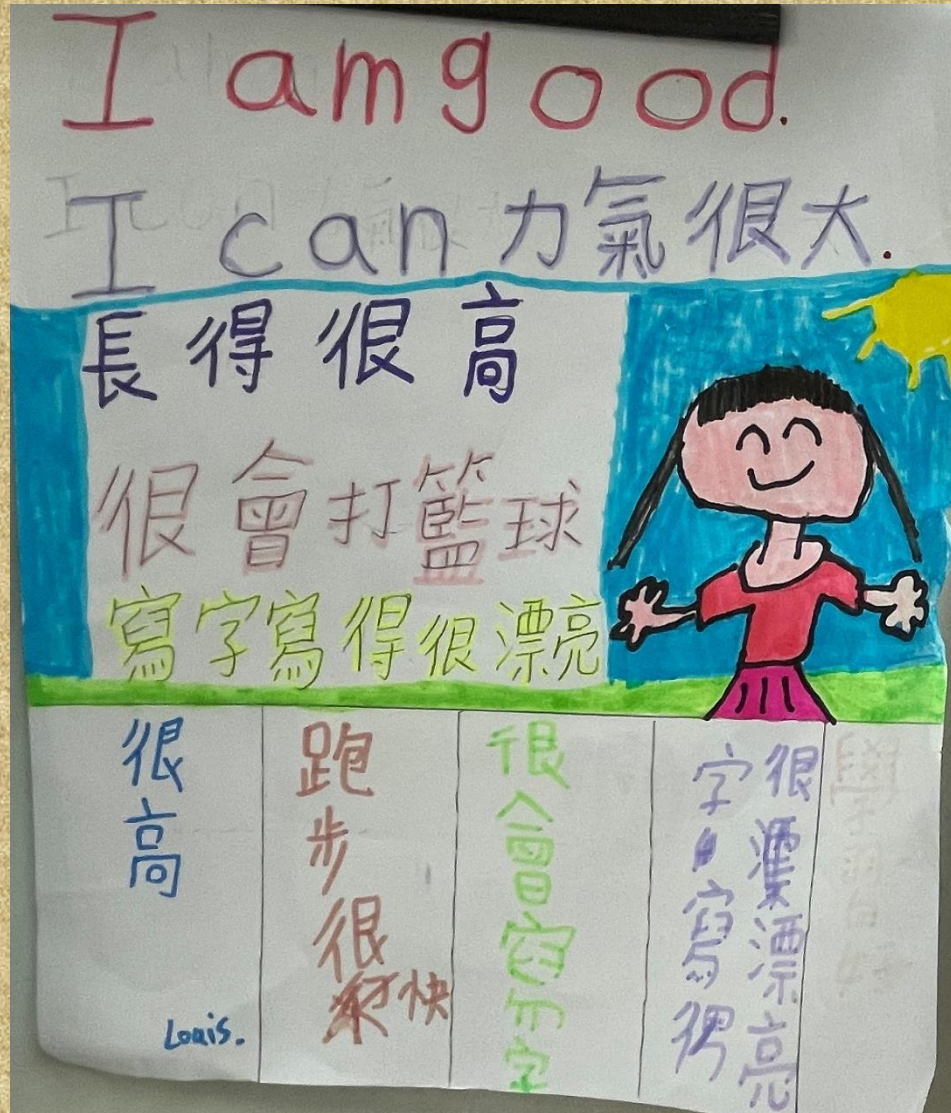 I am good.
I can 力氣很大.
長得很高
很會打籃球
寫字寫得很漂亮
很高
Louis.
跑步很快
很會寫字
字寫得
很漂亮